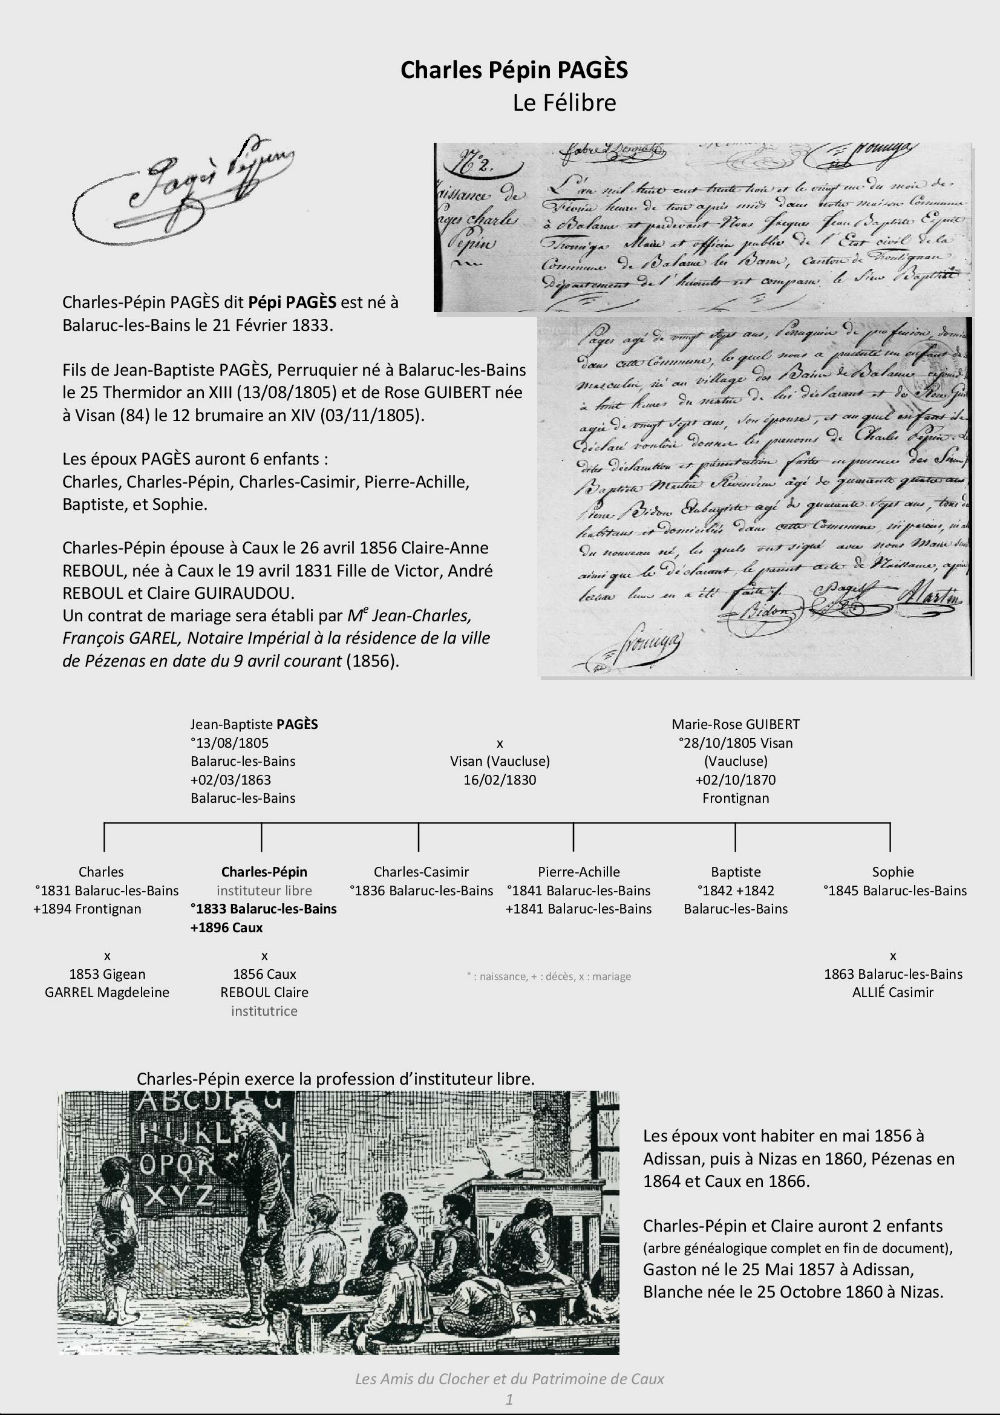 Charles Pépin PAGÈS
Le Félibre
Pagès Pépin
N° 2.
Naissance de
Pages charles
Pépin
L'an mil huit cent trente trois et le vingt un du mois de
Février heure de trois après midi dans notre maison Commune
à Balaruc et pardevant Nous Jacques Jean Baptiste Esprit
Maire et officier public de l'Etat civil de la
Commune de Balaruc les Bains, canton de Frontignan
département de l'hérault est comparu le Sieur Baptiste
Charles-Pépin PAGÈS dit Pépi PAGÈS est né à
Balaruc-les-Bains le 21 Février 1833.
Fils de Jean-Baptiste PAGÈS, Perruquier né à Balaruc-les-Bains
le 25 Thermidor an XIII (13/08/1805) et de Rose GUIBERT née
à Visan (84) le 12 brumaire an XIV (03/11/1805).
Les époux PAGÈS auront 6 enfants :
Charles, Charles-Pépin, Charles-Casimir, Pierre-Achille,
Baptiste, et Sophie.
Charles-Pépin épouse à Caux le 26 avril 1856 Claire-Anne
REBOUL, née à Caux le 19 avril 1831 Fille de Victor, André
REBOUL et Claire GUIRAUDOU.
Un contrat de mariage sera établi par Me Jean-Charles,
François GAREL, Notaire Impérial à la résidence de la ville
de Pézenas en date du 9 avril courant (1856).
Pages agé de vingt sept ans, Perruquier de profession,
dans cette Commune, lequel nous a présenté un enfant de
masculin, né au village des Bains de Balaruc
à huit heures du matin de lui déclarant et de Rose
agée de vingt sept ans, son épouse, et auquel enfant il a
déclaré vouloir donner les prénoms de Charles Pépin
dites déclaration et présentation faites en présence des Sieurs
Baptiste Martin Revendeur âgé de quarante quatre ans
Pierre Bidon Aubergiste agé de quarante sept ans, tous
habitans et domiciliés dans cette Commune
du nouveau né, les quels ont signé avec nous Maire
ainsi que le déclarant, le présent acte de Naissance, après
lecture leur en a été faite
Bidon Pages Martin
Jean-Baptiste PAGÈS
°13/08/1805
Balaruc-les-Bains
+02/03/1863
Balaruc-les-Bains
x
Visan (Vaucluse)
16/02/1830
Marie-Rose GUIBERT
°28/10/1805 Visan
(Vaucluse)
+02/10/1870
Frontignan
Charles
°1831 Balaruc-les-Bains
+1894 Frontignan
x
1853 Gigean
GARREL Magdeleine
Charles-Pépin
instituteur libre
°1833 Balaruc-les-Bains
+1896 Caux
x
1856 Caux
REBOUL Claire
institutrice
Charles-Casimir
°1836 Balaruc-les-Bains
Pierre-Achille
°1841 Balaruc-les-Bains
+1841 Balaruc-les-Bains
Baptiste
°1842 +1842
Balaruc-les-Bains
Sophie
°1845 Balaruc-les-Bains
x
1863 Balaruc-les-Bains
ALLIÉ Casimir
° : naissance, + : décès, x : mariage
Charles-Pépin exerce la profession d'instituteur libre.
ABCDEFG
HIJKLMN
OPQR
XYZ
Les époux vont habiter en mai 1856 à
Adissan, puis à Nizas en 1860, Pézenas en
1864 et Caux en 1866.
Charles-Pépin et Claire auront 2 enfants
(arbre généalogique complet en fin de document),
Gaston né le 25 Mai 1857 à Adissan,
Blanche née le 25 Octobre 1860 à Nizas.
Les Amis du Clocher et du Patrimoine de Caux
1